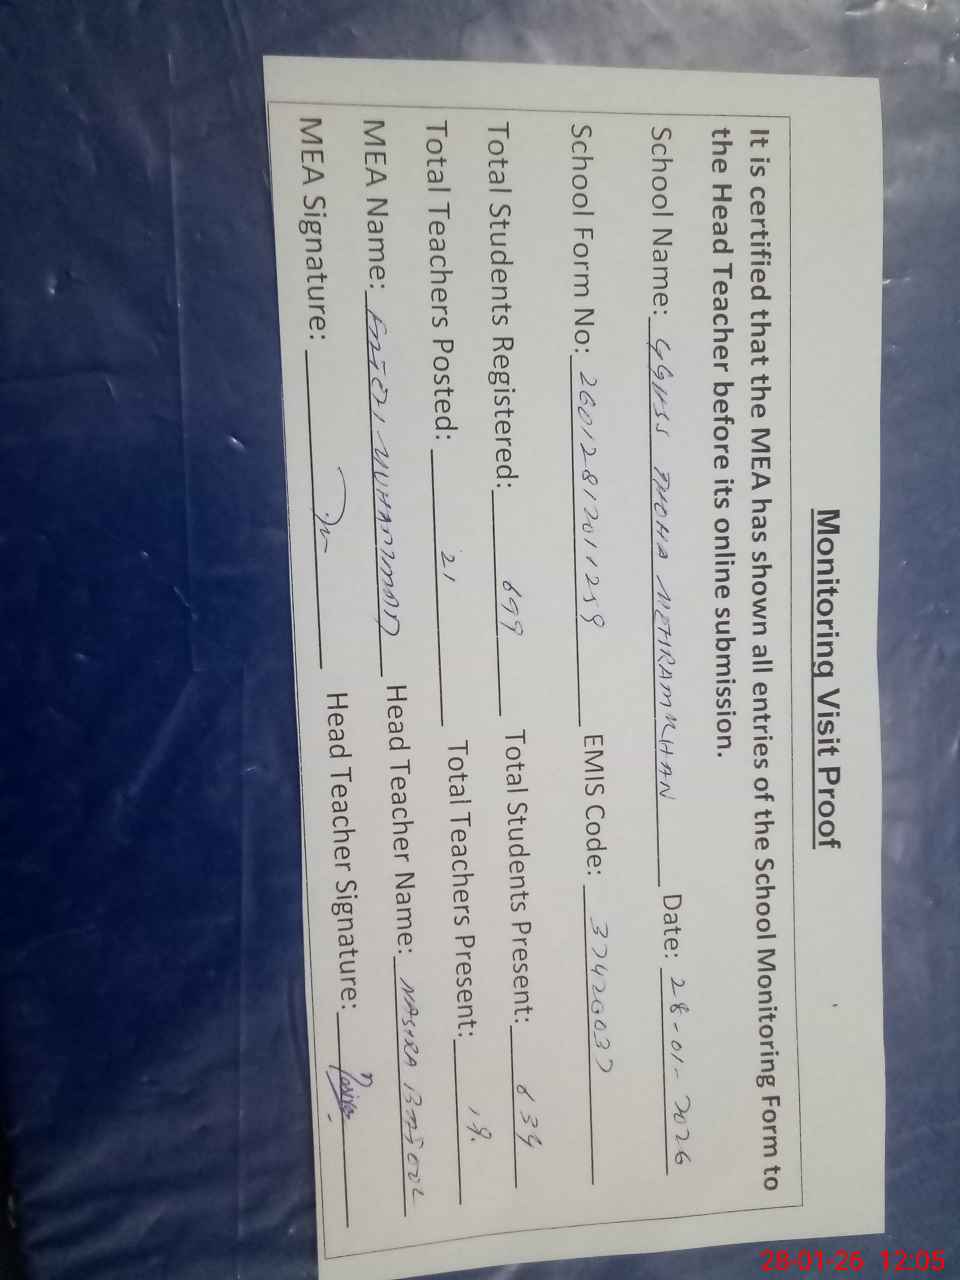 Monitoring Visit Proof
It is certified that the MEA has shown all entries of the School Monitoring Form to
the Head Teacher before its online submission.
School Name: GGHSS THOHA MEHRAM KHAN Date: 28-01-2026
School Form No: EMIS Code: 37420037
Total Students Registered: 699 Total Students Present: 634
Total Teachers Posted: 21 Total Teachers Present: 19.
MEA Name: MUHAMMAD Head Teacher Name: NASIRA BATOOL
MEA Signature: Head Teacher Signature:
28-01-26 12:05